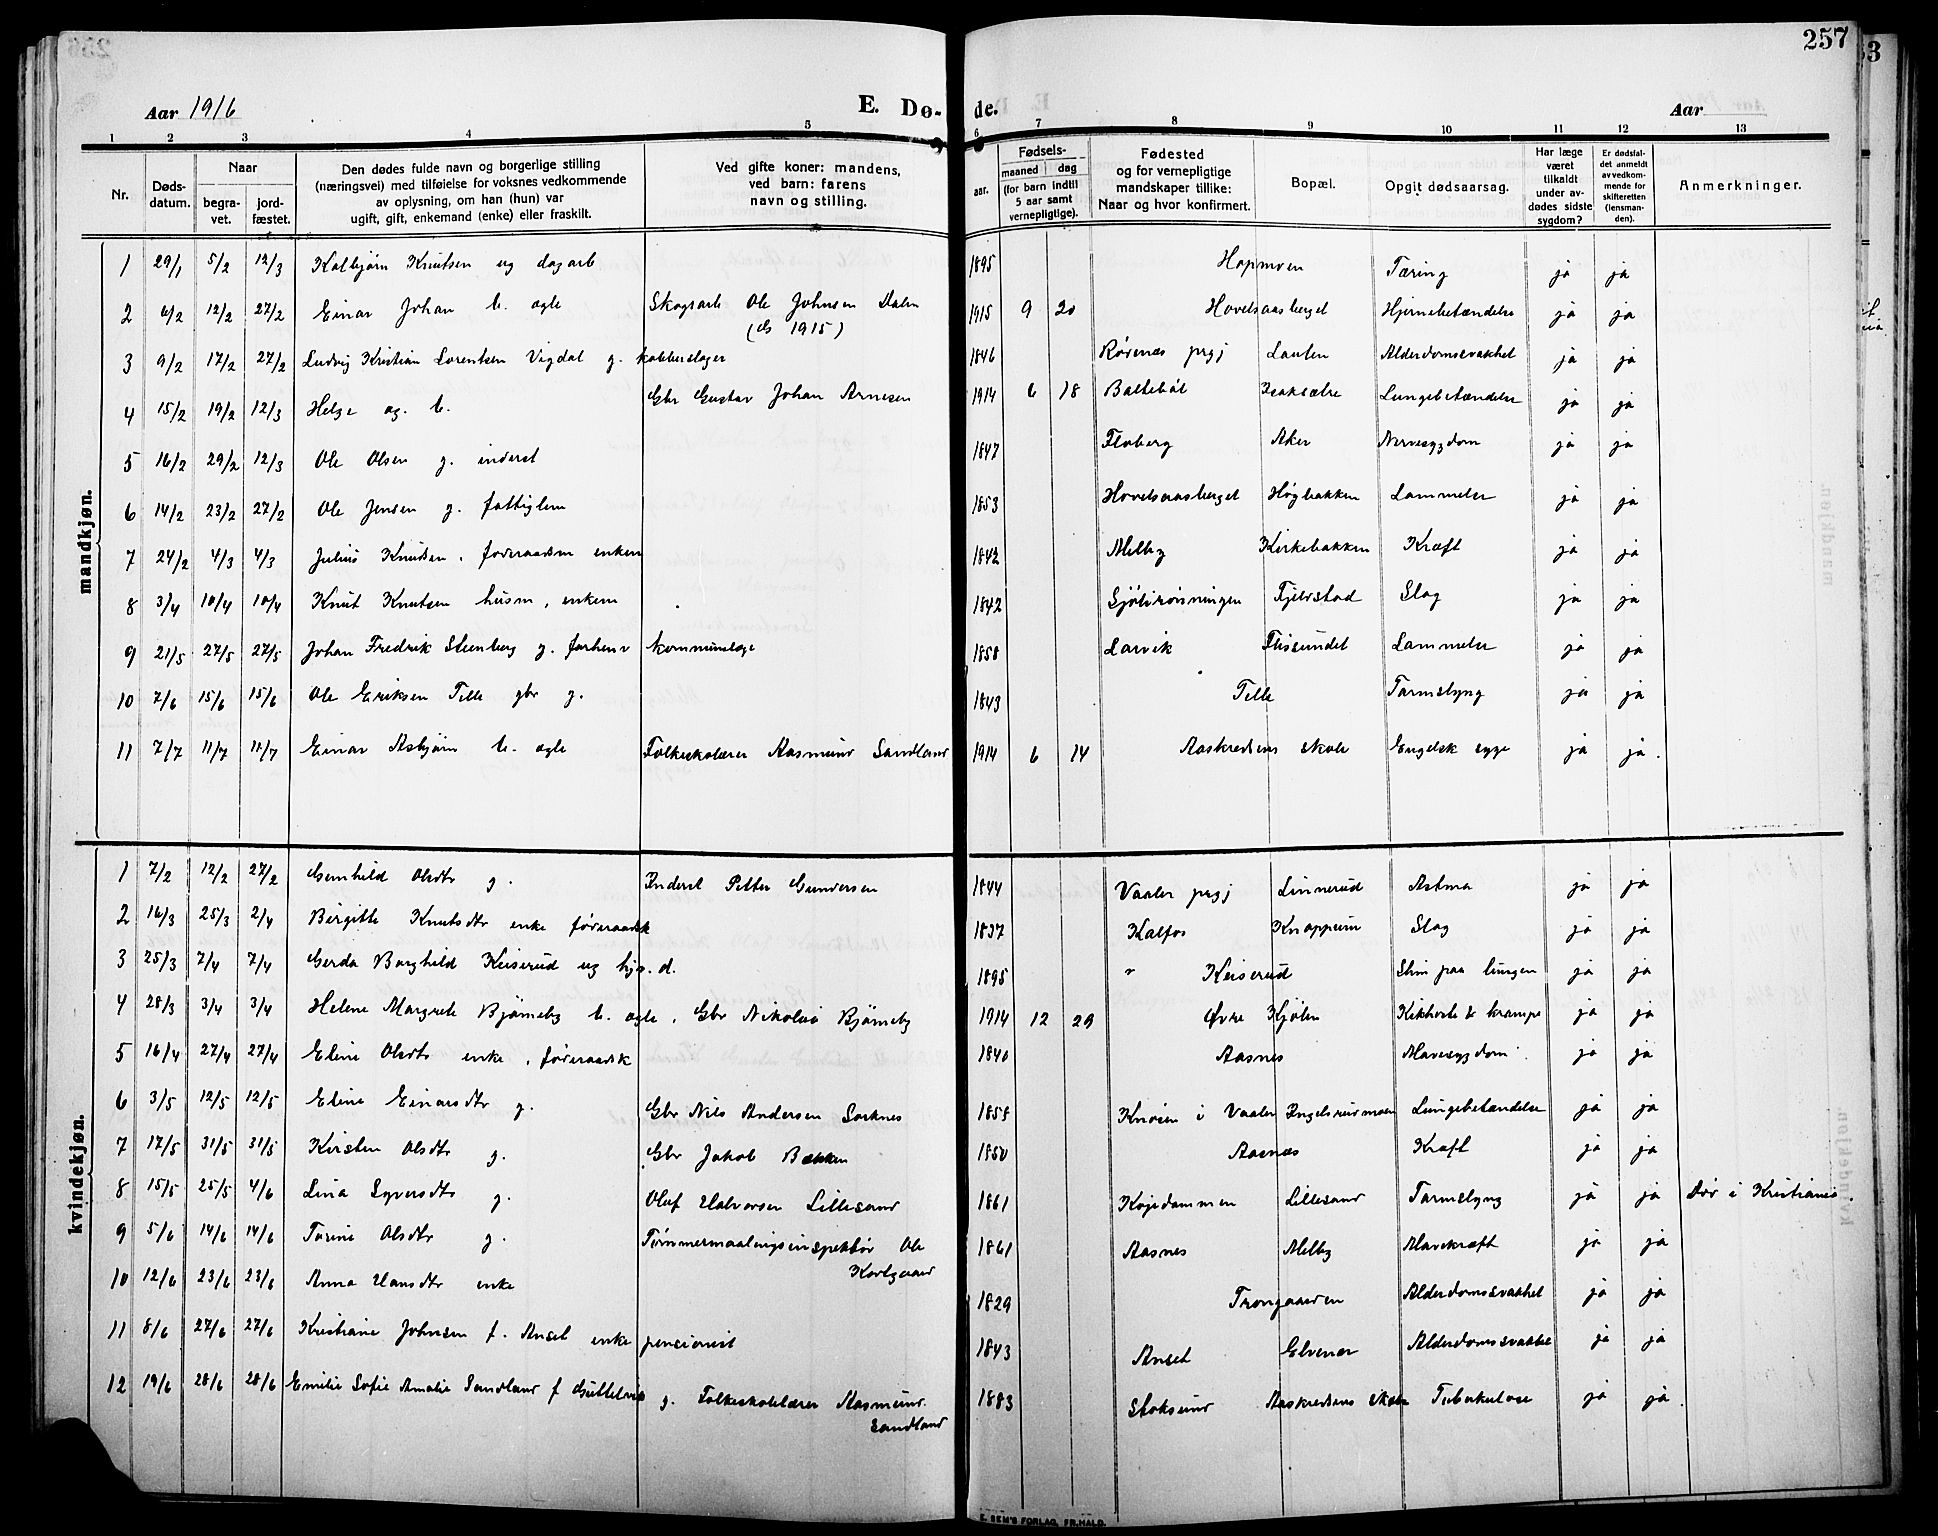 257
Aar 1916
E. Dø- de.
Aar
1 2 3 4 5 6 7 8 9 10 11 12 13
Nr.
Døds-
datum.
Naar
begra-
vet.
jord-
fæstet.
Den dødes fulde navn og borgerlige stilling
(næringsvei) med tilføielse for voksnes vedkommende
av oplysning, om han (hun) var
ugift, gift, enkemand (enke) eller fraskilt.
Ved gifte koner: mandens,
ved barn: farens
navn og stilling.
aar.
Fødsels-
maaned dag
(for barn indtil
5 aar samt
vernepligtige).
Fødested
og for vernepligtige
mandskaper tillike:
Naar og hvor konfirmert.
Bopæl.
Opgit dødsaarsag.
Har læge
været
tilkaldt
under av-
dødes sidste
sygdom?
Er dødsfal-
det anmeldt
av vedkom-
mende for
skifteretten
(lensman-
den).
Anmerkninger.
mandkjøn.
1 29/1 5/2 12/3 Kolbjørn Knutsen ug dagarb 1895 Hopmoen Tæring ja ja
2 6/2 12/2 27/2 Einar Johan b. egte Skogsarb Ole Johnsen Dalen 1915 9 20 Hovelsaasberget Hjernebetændelse ja ja
(ds 1915)
3 9/2 17/2 27/2 Ludvig Kristian Lorentsen Vigdal g. kobberslager 1846 Rørenæs prgj Lauten Alderdomssvakhet ja ja
4 15/2 19/2 12/3 Helge eg. b. Gbr Gustav Johan Arnesen 1914 6 18 Baltebøl Isaksætre Lungebetændelse ja ja
5 16/2 29/2 12/3 Ole Olsen g. inderst 1847 Floberg Aker Nervesygdom ja ja
6 14/2 23/2 27/2 Ole Jensen g. fattiglem 1853 Hovelsaasberget Høgbakken Lammelse ja ja
7 24/2 4/3 4/3 Julius Knudsen, føderaadsm enkem 1842 Melby Kirkebakken Kræft ja ja
8 3/4 10/4 10/4 Knut Knutsen husm, enkem 1842 Sjølirønningen Fjelstad Slag ja ja
9 21/5 27/5 27/5 Johan Fredrik Steenberg g. forhenv kommunelæge 1858 Larvik Flisundet Lammelse ja ja
10 7/6 15/6 15/6 Ole Eriksen Telle gbr g. 1843 Telle Tarmslyng ja ja
11 7/7 11/7 11/7 Einar Asbjørn b. egte Folkeskolelærer Aasmund Sandland 1914 6 14 Aaskredsens skole Engelsk syge ja ja.
kvindekjøn.
1 7/2 12/2 27/2 Gunhild Olsdtr g. Inderst Petter Gundersen 1844 Vaaler prgj Linnerud Astma ja ja
2 16/3 25/3 2/4 Birgitte Knutsdtr enke føderaadsk 1837 Kalfos Knappum Slag ja ja
3 25/3 7/4 7/4 Gerda Borghild Keiserud ug hjv. d. 1895 " Keiserud Slim paa lungen ja ja
4 28/3 3/4 3/4 Helene Margrete Bjørneby b. egte, Gbr Nikolai Bjørneby 1914 12 29 Øvre Kjølen Kikhoste & krampe ja ja
5 16/4 27/4 27/4 Eline Olsdtr enke, føderaadsk 1840 Aasnes Mavesygdom ja ja
6 3/5 12/5 12/5 Eline Einarsdtr g. Gbr Nils Andersen Sorknes 1858 Knøsen i Vaaler Engelsrumoen Lungebetændelse ja ja
7 17/5 31/5 31/5 Kirsten Olsdtr g. Gbr Jakob Bækken 1850 Aasnæs Kræft ja ja
8 15/5 25/5 4/6 Lina Syversdtr g. Oluf Halvorsen Lillesand 1861 Kojedammen Lillesand Tarmslyng ja ja Dør i Kristiania.
9 5/6 14/6 14/6 Torine Olsdtr g. Tømmermaalingsinspektør Ole 1861 Aasnes Melby Mavekræft ja ja
Kortgaard
10 12/6 23/6 23/6 Anna Hansdtr enke 1829 Trongaarden Alderdomssvakhet ja ja
11 8/6 27/6 27/6 Kristiane Johnsen f. Anset enke pensionist 1843 Anset Elvenor Alderdomssvakhet ja ja
12 19/6 28/6 28/6 Emilie Sofie Amalie Sandland f Guttelvik g. Folkeskolelærer Aasmund 1883 Stoksund Aaskredsens skole Tuberkulose ja ja.
Sandland
E. SEM'S FORLAG, FR.HALD.